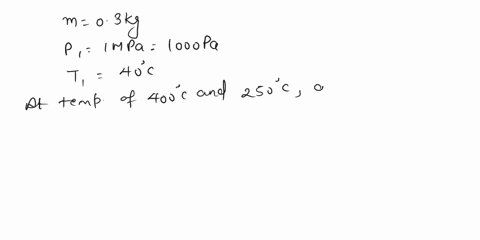 m = 0.3kg
P₁ = 1MPa = 1000Pa
T₁ = 40°c
At temp. of 400°c and 250°c, a